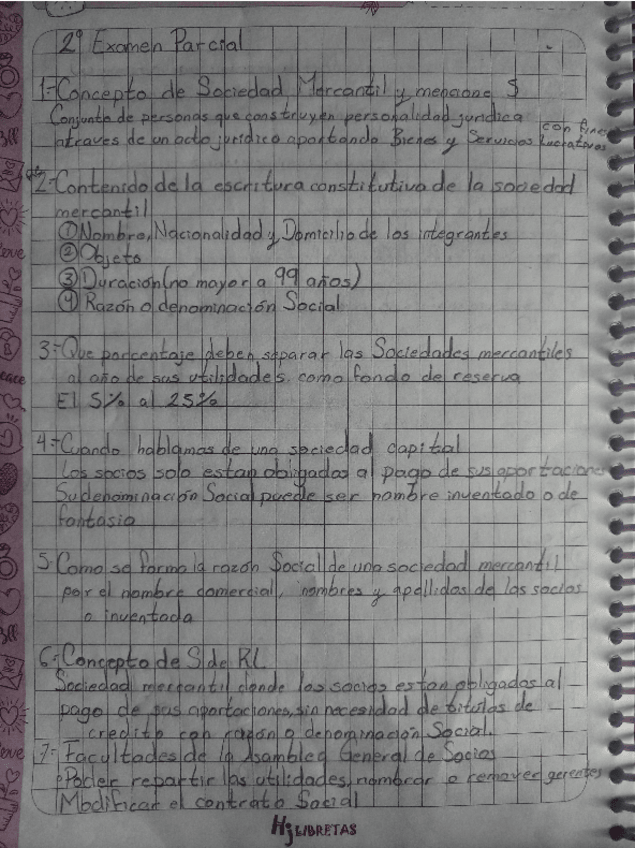 2º Examen Parcial
1-Concepto de Sociedad Mercantil y mencione 5
Conjunto de personas que construyen personalidad juridica
atraves de un acto juridico aportando Bienes y Servicios con fines
lucrativos
2-Contenido de la escritura constitutiva de la sociedad
mercantil
① Nombre, Nacionalidad y Domicilio de los integrantes
② Objeto
③ Duración (no mayor a 99 años)
④ Razón o denominación Social
3-Que porcentaje deben separar las Sociedades mercantiles
al año de sus utilidades como fondo de reserva
El 5% al 25%
4-Cuando hablamos de una sociedad capital
Los socios solo estan obligados al pago de sus aportaciones
Su denominación Social puede ser nombre inventado o de
fantasia
5-Como se forma la razón Social de una sociedad mercantil
por el nombre comercial, nombres y apellidos de los socios
o inventada
6-Concepto de S de RL
Sociedad mercantil donde los socios estan obligados al
pago de sus aportaciones, sin necesidad de titulos de
credito con razón o denominación Social.
7- Facultades de la Asamblea General de Socios
Poder repartir las utilidades, nombrar o remover gerentes
Modificar el contrato Social
Hj LIBRETAS